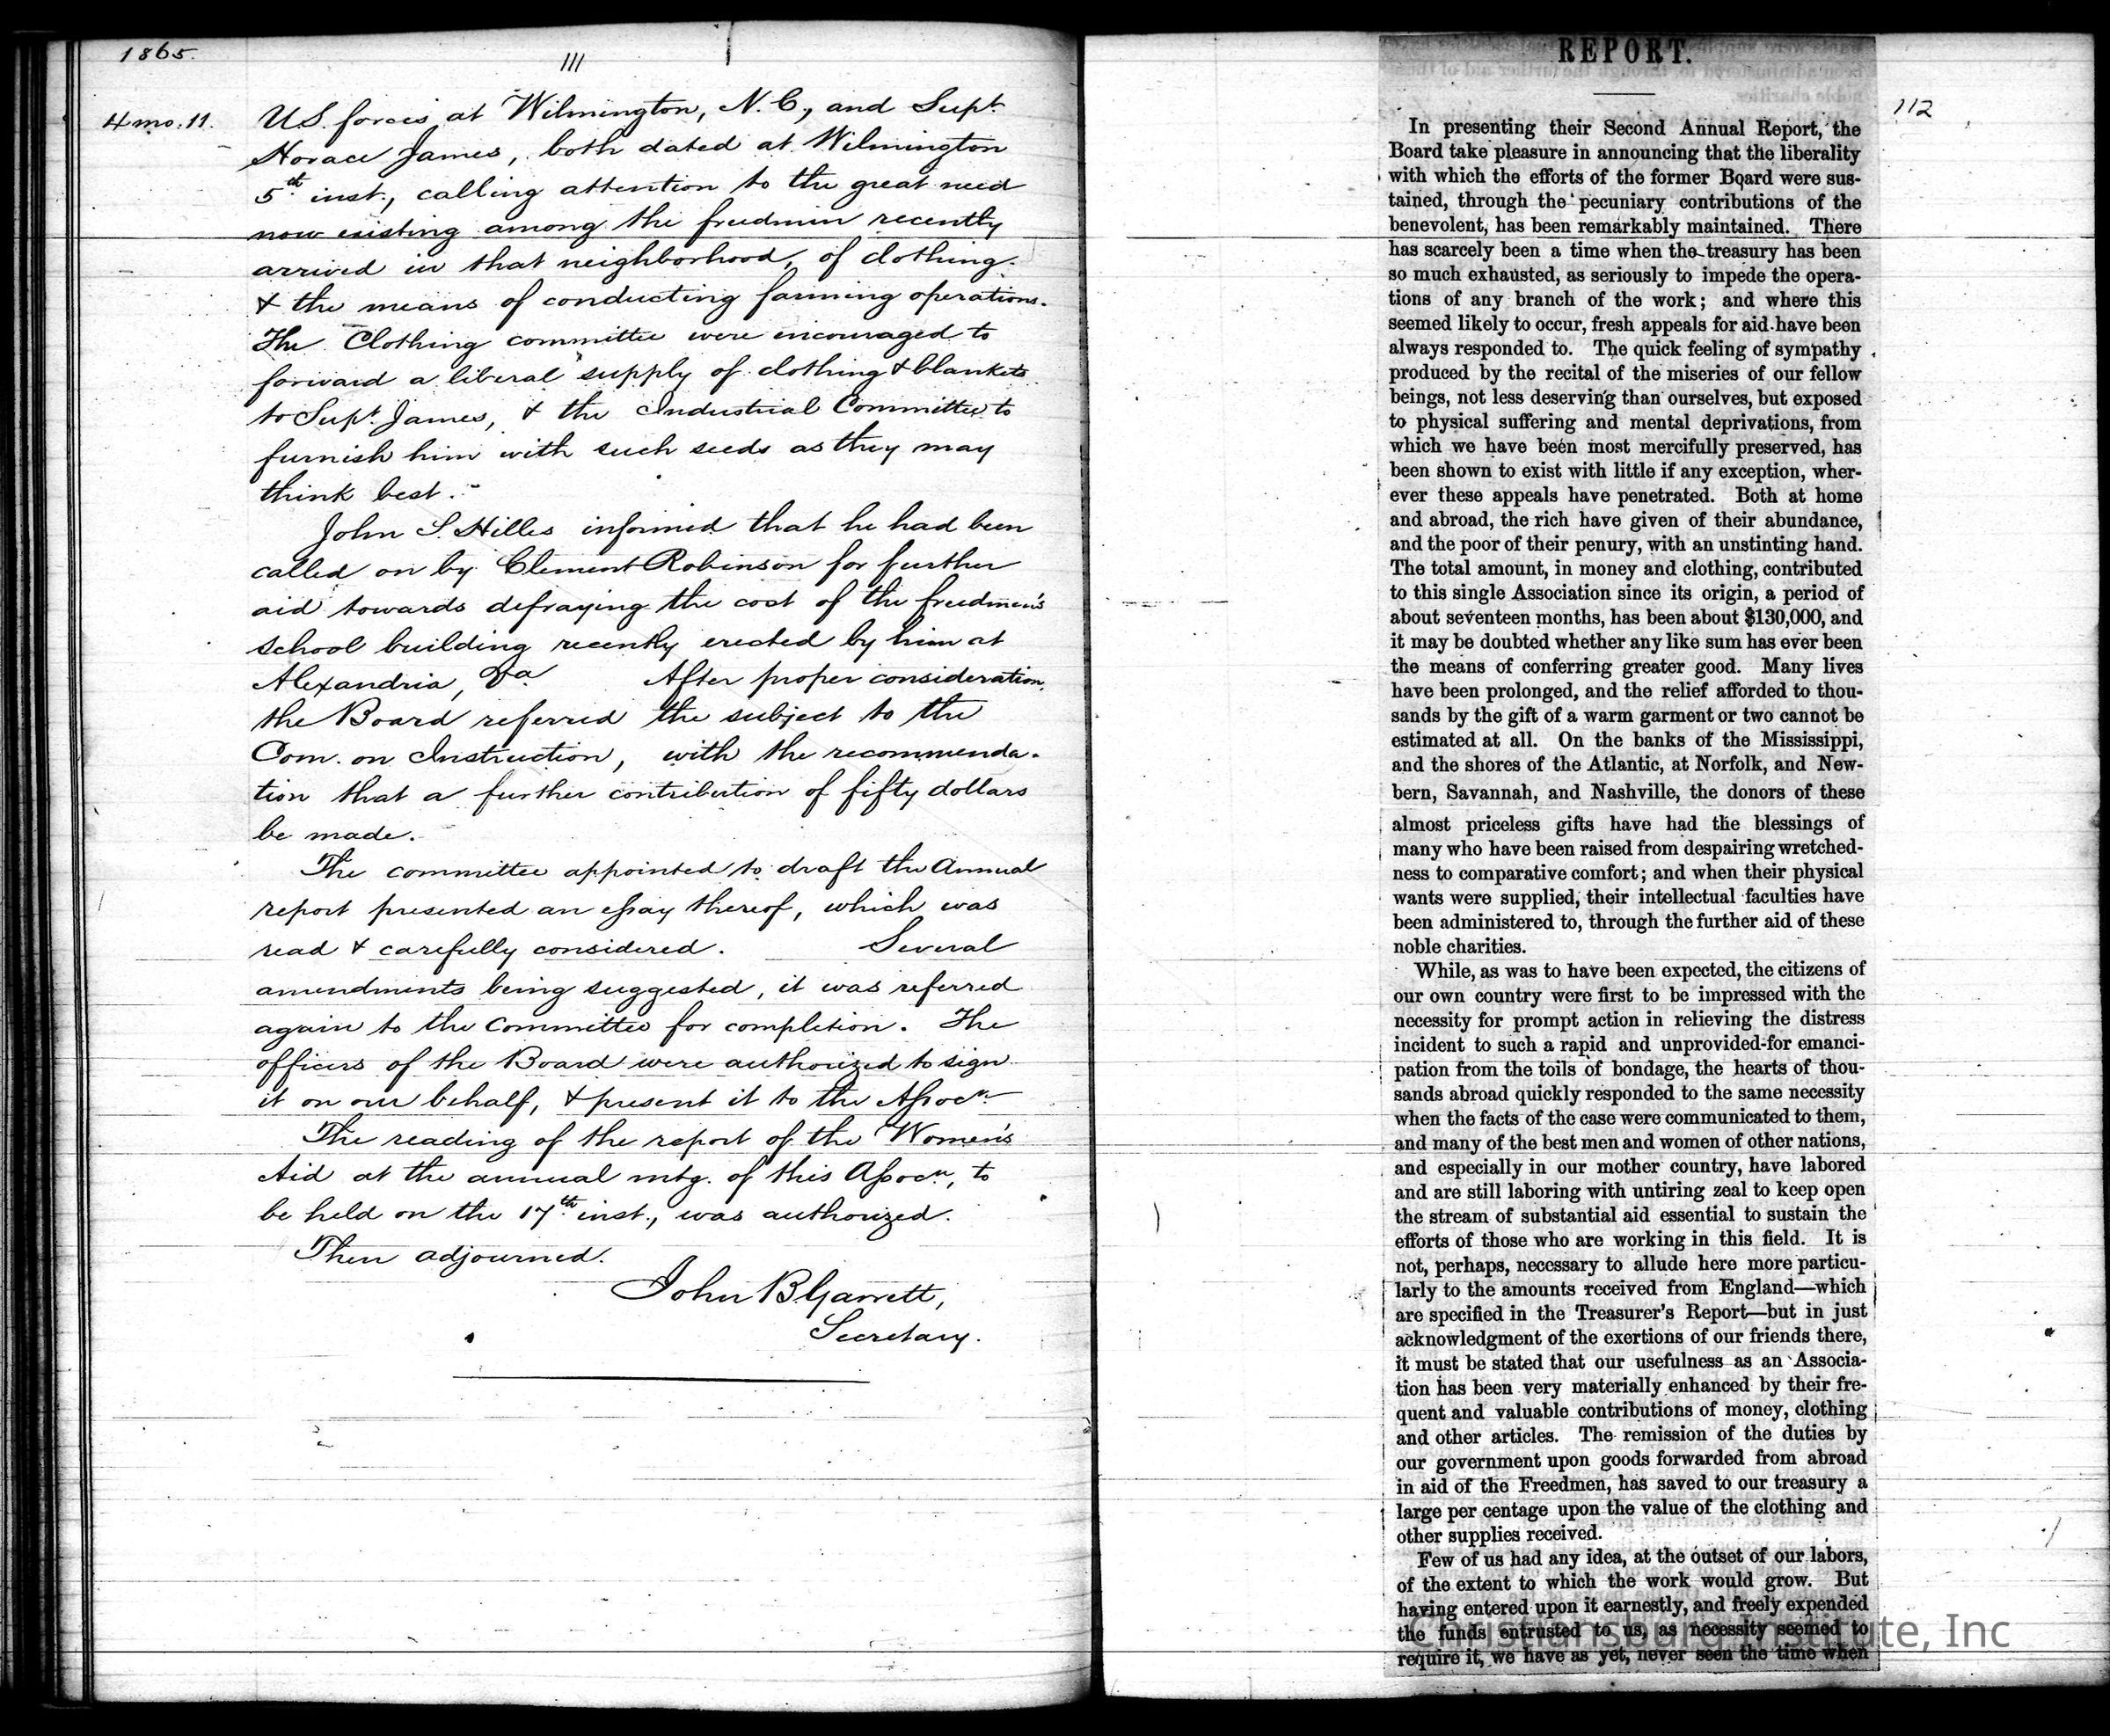 1865.
111
4 mo. 11.
U.S. forces at Wilmington, N.C., and Supt.
Horace James, both dated at Wilmington
5th inst., calling attention to the great need
now existing among the freedmen recently
arrived in that neighborhood, of clothing
& the means of conducting farming operations.
The Clothing committee were encouraged to
forward a liberal supply of clothing & blankets
to Supt. James, & the Industrial Committee to
furnish him with such seeds as they may
think best.
John S. Hilles informed that he had been
called on by Clement Robinson for further
aid towards defraying the cost of the freedmen's
school building recently erected by him at
Alexandria, Va. After proper consideration,
the Board referred the subject to the
Com. on Instruction, with the recommenda-
tion that a further contribution of fifty dollars
be made.
The committee appointed to draft the Annual
report presented an essay thereof, which was
read & carefully considered. Several
amendments being suggested, it was referred
again to the Committee for completion. The
officers of the Board were authorized to sign
it on our behalf, & present it to the Assocn.
The reading of the report of the Women's
Aid at the annual mtg. of this Assocn, to
be held on the 17th inst., was authorized.
Then adjourned.
John B Garrett,
Secretary.
112
REPORT.
In presenting their Second Annual Report, the
Board take pleasure in announcing that the liberality
with which the efforts of the former Board were sus-
tained, through the pecuniary contributions of the
benevolent, has been remarkably maintained. There
has scarcely been a time when the treasury has been
so much exhausted, as seriously to impede the opera-
tions of any branch of the work; and where this
seemed likely to occur, fresh appeals for aid have been
always responded to. The quick feeling of sympathy
produced by the recital of the miseries of our fellow
beings, not less deserving than ourselves, but exposed
to physical suffering and mental deprivations, from
which we have been most mercifully preserved, has
been shown to exist with little if any exception, wher-
ever these appeals have penetrated. Both at home
and abroad, the rich have given of their abundance,
and the poor of their penury, with an unstinting hand.
The total amount, in money and clothing, contributed
to this single Association since its origin, a period of
about seventeen months, has been about $130,000, and
it may be doubted whether any like sum has ever been
the means of conferring greater good. Many lives
have been prolonged, and the relief afforded to thou-
sands by the gift of a warm garment or two cannot be
estimated at all. On the banks of the Mississippi,
and the shores of the Atlantic, at Norfolk, and New-
bern, Savannah, and Nashville, the donors of these
almost priceless gifts have had the blessings of
many who have been raised from despairing wretched-
ness to comparative comfort; and when their physical
wants were supplied, their intellectual faculties have
been administered to, through the further aid of these
noble charities.
While, as was to have been expected, the citizens of
our own country were first to be impressed with the
necessity for prompt action in relieving the distress
incident to such a rapid and unprovided-for emanci-
pation from the toils of bondage, the hearts of thou-
sands abroad quickly responded to the same necessity
when the facts of the case were communicated to them,
and many of the best men and women of other nations,
and especially in our mother country, have labored
and are still laboring with untiring zeal to keep open
the stream of substantial aid essential to sustain the
efforts of those who are working in this field. It is
not, perhaps, necessary to allude here more particu-
larly to the amounts received from England—which
are specified in the Treasurer's Report—but in just
acknowledgment of the exertions of our friends there,
it must be stated that our usefulness as an Associa-
tion has been very materially enhanced by their fre-
quent and valuable contributions of money, clothing
and other articles. The remission of the duties by
our government upon goods forwarded from abroad
in aid of the Freedmen, has saved to our treasury a
large per centage upon the value of the clothing and
other supplies received.
Few of us had any idea, at the outset of our labors,
of the extent to which the work would grow. But
having entered upon it earnestly, and freely expended
the funds entrusted to us, as necessity seemed to
require it, we have as yet, never seen the time when
Christiansburg Institute, Inc